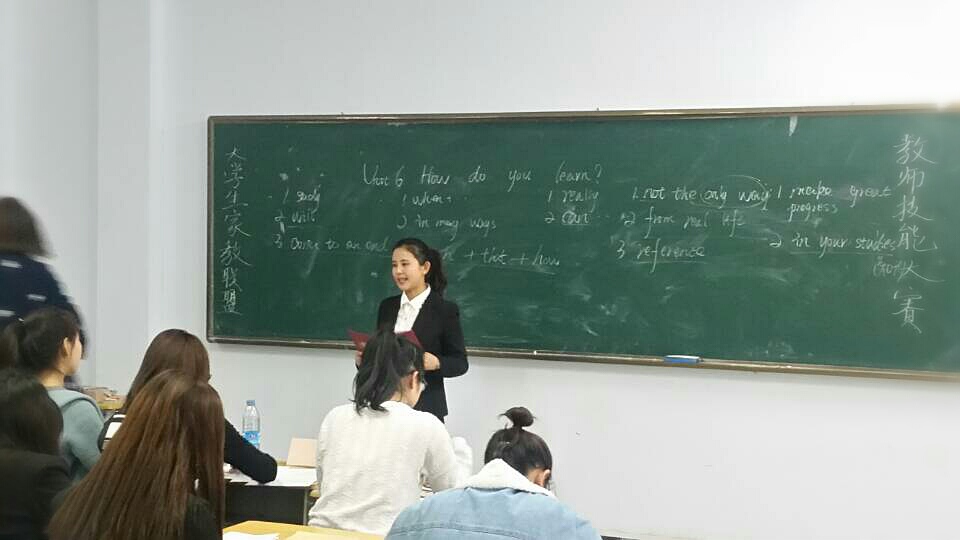 大学生家教联盟
Unit 6 How do you learn?
1 study
2 with
3 come to an end
1 when
2 in many ways
+ that + how
1 really
2 can
1 not the only way
2 from real life
3 reference
1 make great
progress
2 in your studies
教师技能大赛